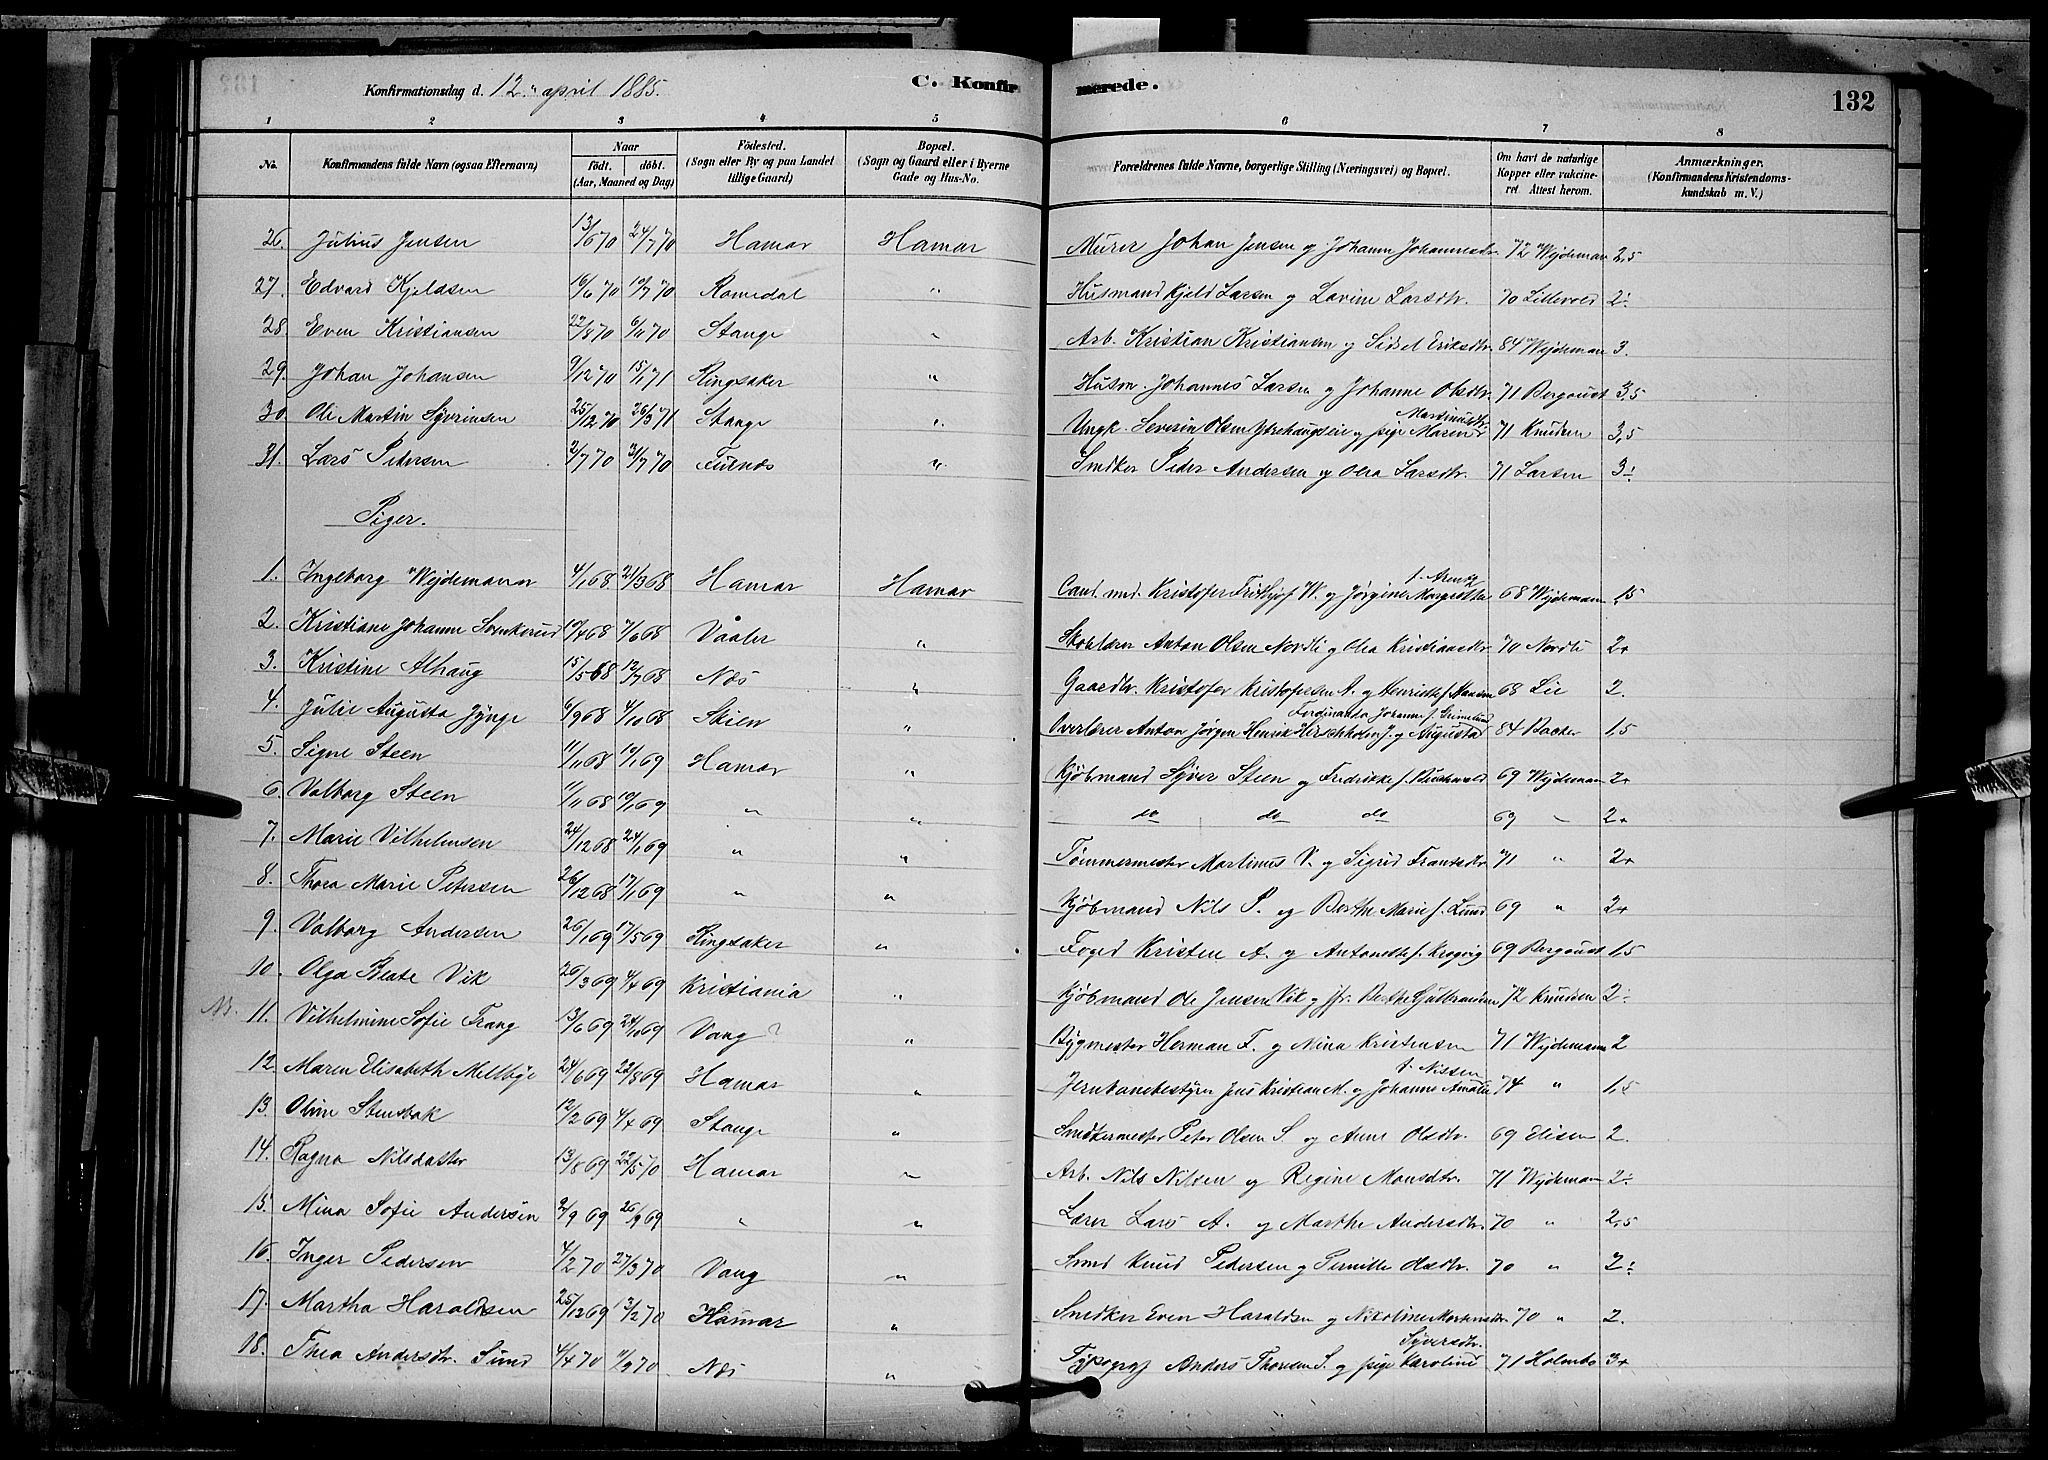 Konfirmationsdag d. 12. april 1885.
C. Konfirmerede.
132
1 2 3 4 5 6 7 8
No. Konfirmandens fulde Navn (ogsaa Efternavn) Naar födt. döbt. (Aar, Maaned og Dag) Födested. (Sogn eller By og paa Landet tillige Gaard) Bopæl. (Sogn og Gaard eller i Byerne Gade og Hus-No. Forældrenes fulde Navne, borgerlige Stilling (Næringsvei) og Bopæl. Om havt de naturlige Kopper eller vakcineret. Attest herom. Anmærkninger. (Konfirmandens Kristendomskundskab m. V.)
26. Julius Jensen 13/6 70 24/7 70 Hamar Hamar Murer Johan Jensen og Johanne Johannesdtr. 72 Wejdeman 2,5
27. Edvard Kjeldsen 16/6 70 19/7 70 Romedal " Husmand Kjeld Larsen og Lovine Larsdtr. 70 Lillevold 2÷
28. Even Kristiansen 6/11 70 Stange " Arb. Kristian Kristiansen og Sidsel Eriksdtr. 84 Wejdeman 3.
29. Johan Johansen 9/12 70 15/1 71 Ringsaker " Husm. Johannes Larsen og Johanne Olsdtr. 71 Bergoust 3,5
30. Ole Martin Syverinsen 25/12 70 26/3 71 Stange " Ungk. Severin Olsen Ytrehaugseie og pige Maren Martinusdtr. 71 Knudsen 3,5
31. Lars Pedersen 2/7 70 31/7 70 Furnæs " Snedker Peder Andersen og Olea Larsdtr. 71 Larsen 3÷
Piger.
1. Ingeborg Wejdemann 4/1 68 21/3 68 Hamar Hamar Cand. med. Kristofer Frithjof W. og Jørgine Margrethe f. Arentz 68 Wejdemann 1,5
2. Kristiane Johanne Svenkerud 19/4 68 7/6 68 Våaler " Skolelærer Anton Olsen Nordli og Olea Kristiansdtr. 70 Nordli 2+
3. Kristine Alhaug 15/5 68 12/7 68 Næs " Gaardbr. Kristofer Kristofersen A. og Henriette f. Hansen 68 Lie 2.
4. Julie Augusta Jynge 6/9 68 4/10 68 Skien " Overlærer Anton Jørgen Henrik Hirschholm J. og Augusta Ferdinanda Johanne f. Grimelund 84 Backer 1,5
5. Signe Steen 11/11 68 10/1 69 Hamar " Kjöbmand Syver Steen og Fredrikke f. Buchwald 69 Wejdeman 2+
6. Valborg Steen 11/11 68 10/1 69 " " do do do 69 " 2+
7. Marie Vilhelmsen 24/12 68 24/1 69 " " Tömmermester Martinus V. og Sigrid Frantsdtr. 71 " 2+
8. Thora Marie Petersen 26/12 68 17/1 69 " " Kjöbmand Nils P. og Berthe Marie f. Lund 69 " 2+
9. Valborg Andersen 26/1 69 17/5 69 Ringsaker " Foged Kristen A. og Antonette f. Krogvig 69 Bergoust 1,5
10. Olga Beate Vik 26/3 69 4/4 69 Kristiania " Kjöbmand Ole Jensen Vik og jfr. Berthe Guttormsen 72 Knudsen 2÷
NB. 11. Vilhelmine Sofie Frang 13/6 69 24/10 69 Vang? " Bygmester Herman F. og Mina Kristensen 71 Wejdemann 2
12. Maren Elisabeth Melbye 24/6 69 22/8 69 Hamar " Jernbanebestyrer Jens Kristian M. og Johanne Amalie f. Nissen 74 " 1,5
13. Oline Stensbak 12/2 69 4/4 69 Stange " Snedkermester Peter Olsen S. og Anne Olsdtr. 69 Elisen 2.
14. Ragna Nilsdatter 13/8 69 22/5 70 Hamar " Arb. Nils Nilsen og Regine Monsdtr. 71 Wejdeman 2÷
15. Mina Sofie Andersen 2/9 69 26/9 69 " " Lærer Lars A. og Marthe Andersdtr. 70 " 2,5
16. Inger Pedersen 4/2 70 27/3 70 Vang " Smed Knud Pedersen og Pernille Olsdtr. 70 " 2÷
17. Martha Haraldsen 25/12 69 13/2 70 Hamar " Snedker Even Haraldsen og Nikoline Mortensdtr. 70 " 2.
18. Thea Andersdtr. Sund 4/4 70 11/9 70 Næs " Typogrf Anders Thorsen S. og pige Karoline Syversdtr. 71 Holmbo 3+